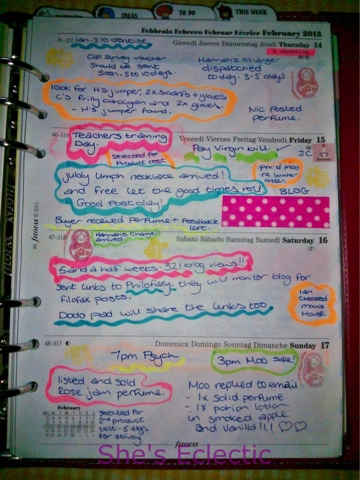 IDEAS
TO DO
THIS WEEK
Febbraio Febrero Februar Février February 2013
45-320
Ian-3.10 dentist
Giovedì Jueves Donnerstag Jeudi Thursday 14
Color Survey voucher
should be sent
soon. Sat 10 days.
Hannah's charge
dispatched
today. 3-5 days
look for H's jumper, 2x scarfs + gloves
C's frilly cardigan and 2x gloves.
- H's jumper found.
Nic Posted
perfume.
46-319
Teachers training
Day.
Venerdì Viernes Freitag Vendredi Friday 15
Selected for
Product test
Pay Virgin bill.
J.C.
Jubly Umph necklace arrived!
and free let the good times roll
Good Post day!
pm'd moo
re water
order.
BLOG
Buyer received perfume + feedback
left.
47-318
Hannah's Charge
arrived
Sabato Sábado Samstag Samedi Saturday 16
5 and a half weeks - 321 blog views!!
Sent links to Philofaxy. they will monitor blog for
filofax posts.
Dodo pad will share the links too
Ian
checked
mom's
House
48-317
Domenica Domingo Sonntag Dimanche Sunday 17
7pm Psych
3pm Moo sale!
listed and sold
Rose jam perfume.
Moo replied to email
- 1x solid perfume
- 1x potion lotion
in smoked apple
and vanilla!!!
February
selected for
2nd product
test - 5 days
for delivery
filofax
A5 filofax © 2011
She's Eclectic